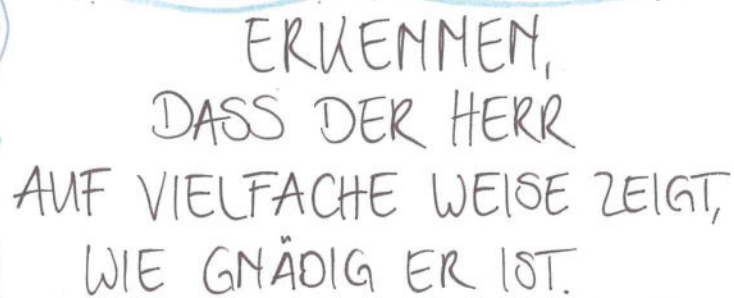 ERKENNEN,
DASS DER HERR
AUF VIELFACHE WEISE ZEIGT,
WIE GNÄDIG ER IST.